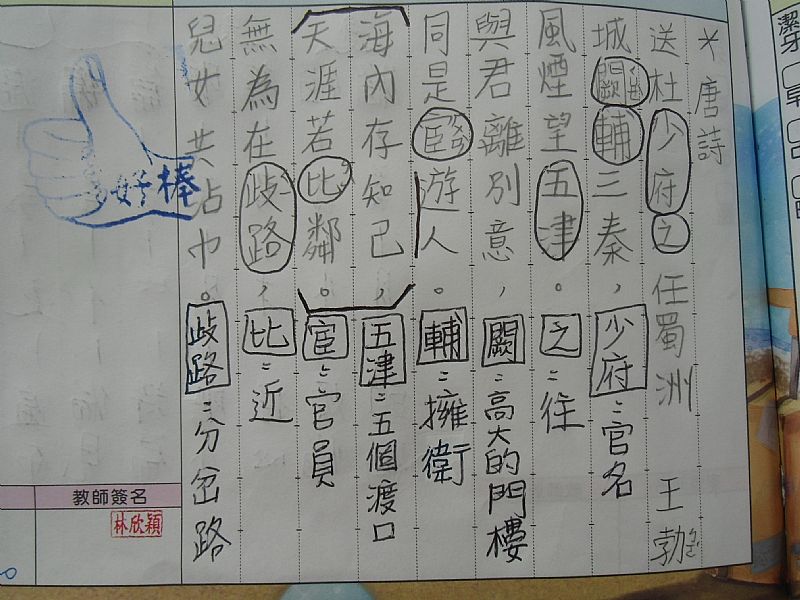 ＊唐詩
送杜少府之任蜀洲 王勃
城闕輔三秦，少府：官名
風煙望五津。之：往
與君離別意，闕：高大的門樓
同是宦遊人。輔：擁衛
海內存知己，五津：五個渡口
天涯若比鄰。宦：官員
無為在歧路，比：近
兒女共沾巾。歧路：分岔路
好棒
教師簽名
林欣穎
潔牙